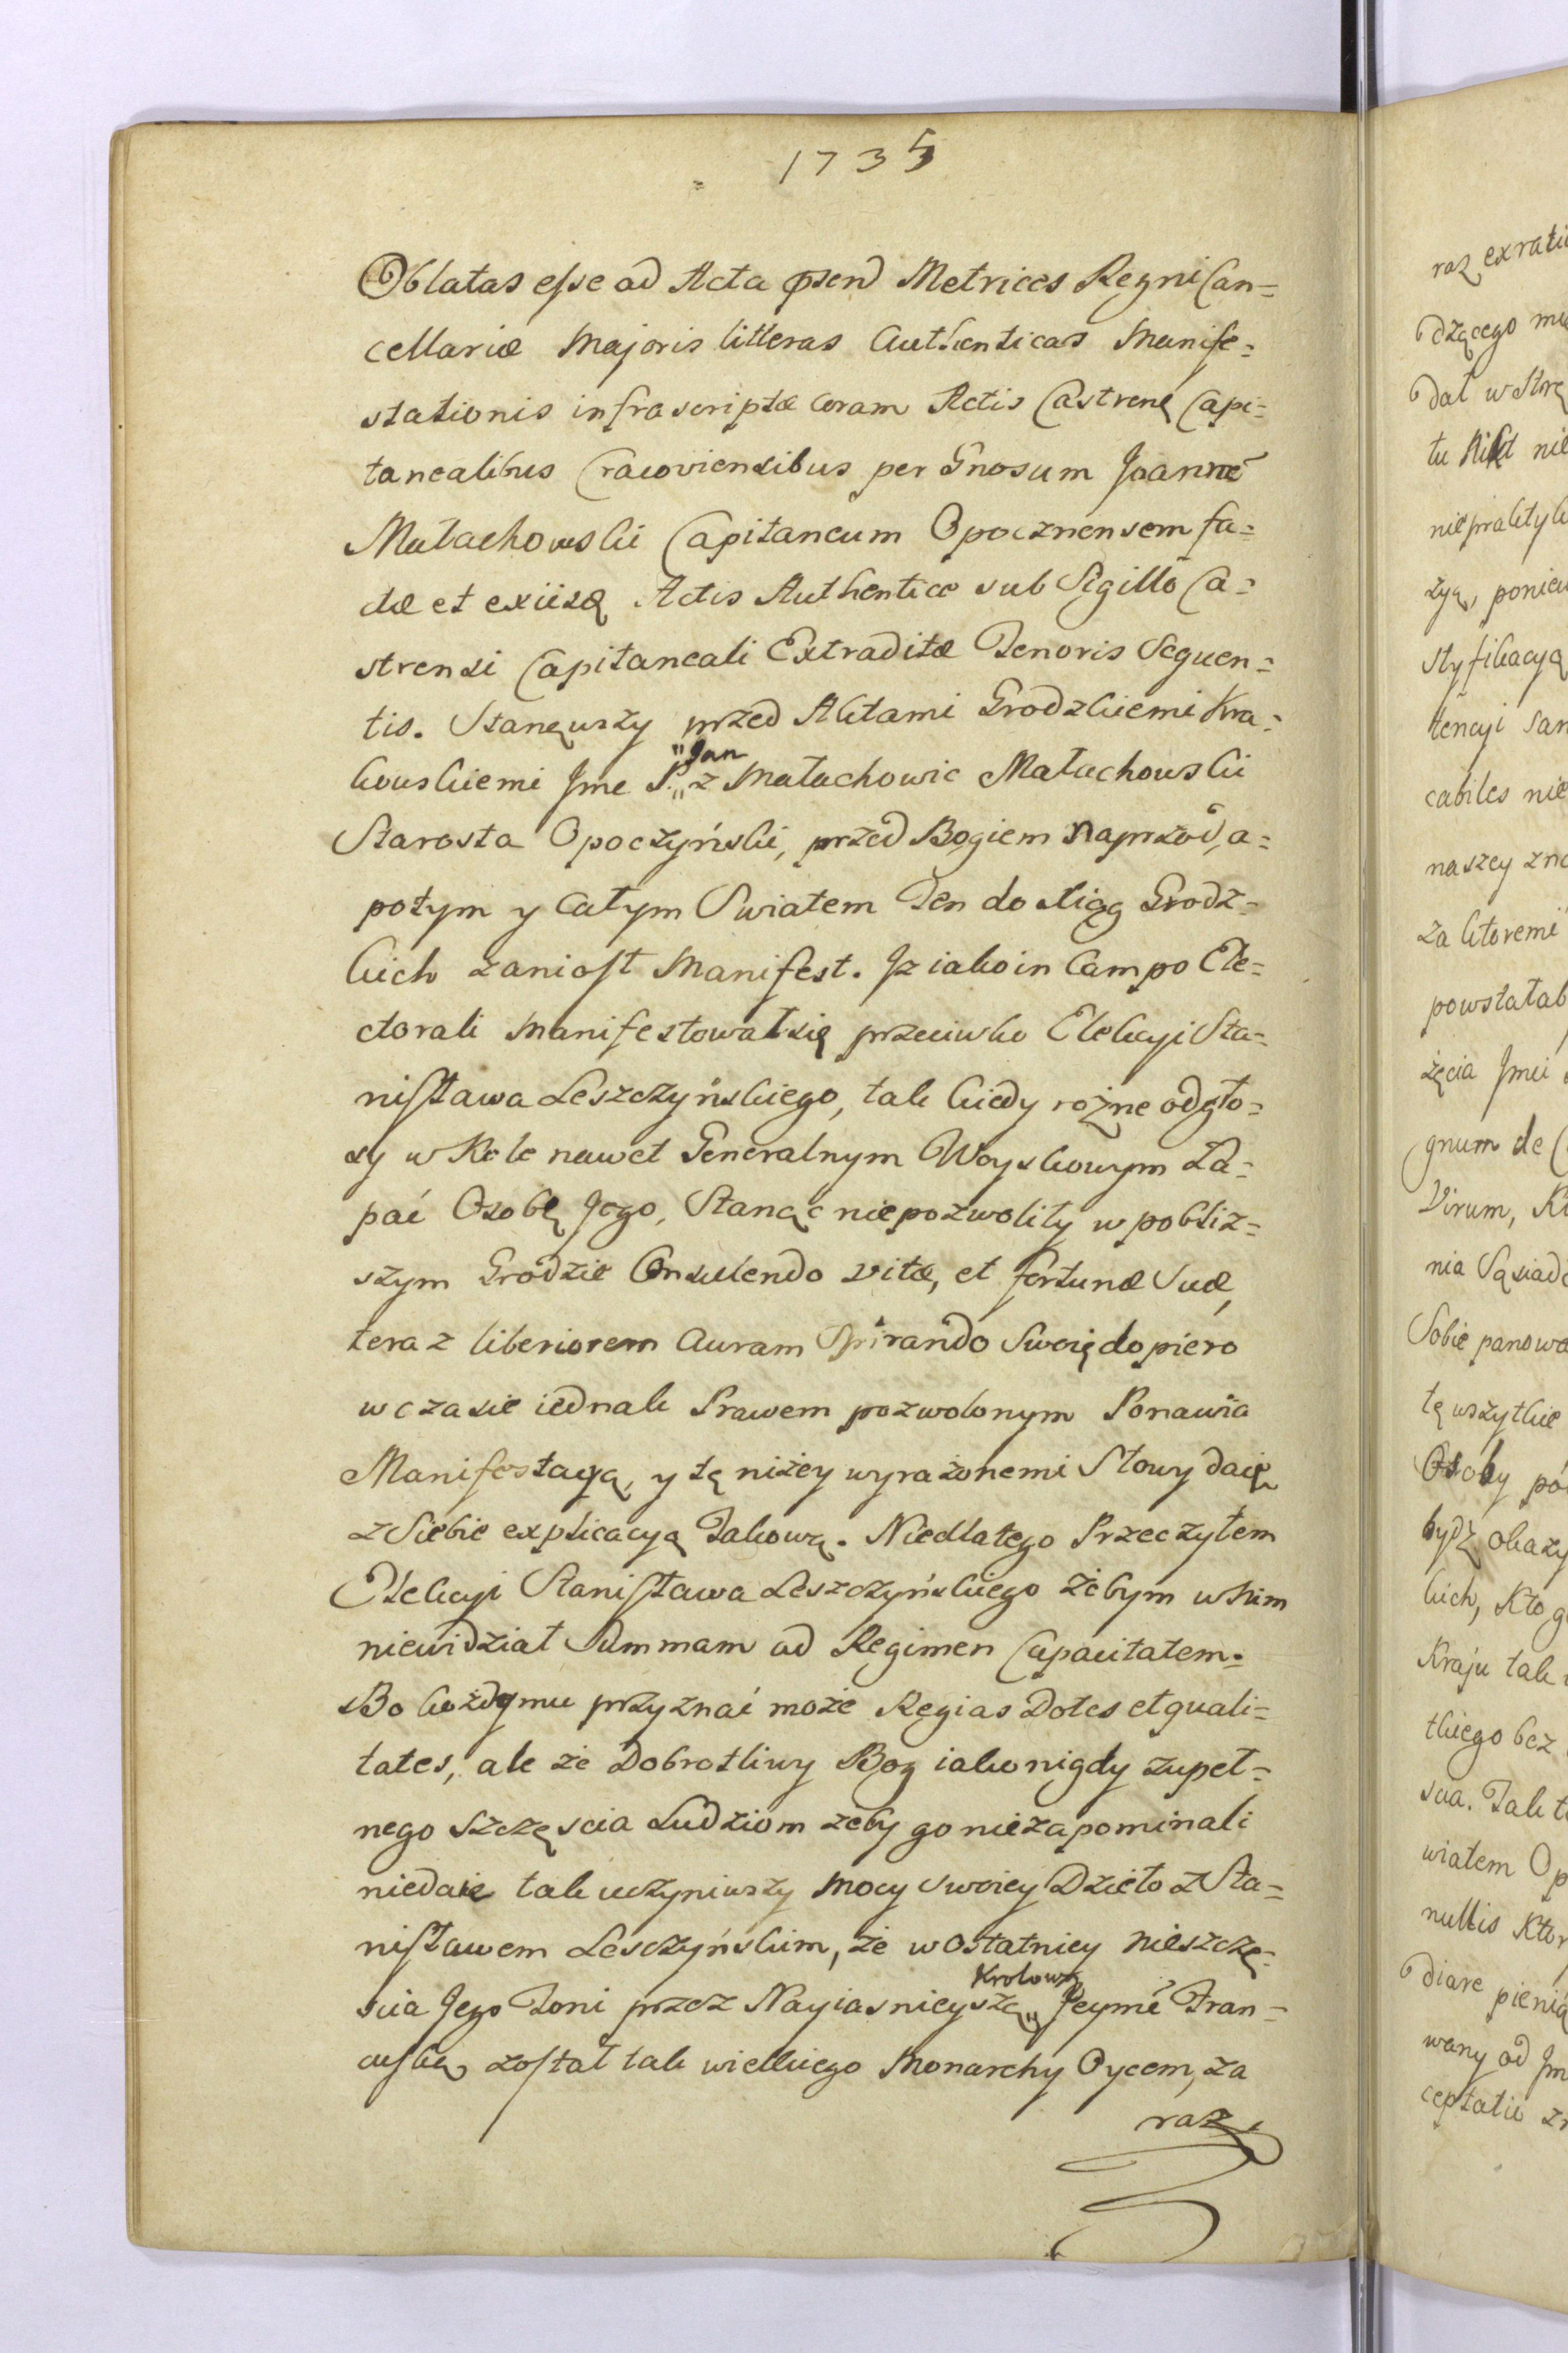 1735
Oblatas esse ad Acta psend Metrices Regni Can=
cellariæ Majoris litteras Authenticas Manife=
stationis infrascriptæ coram Actis Castrenę Capi=
tanealibus Cracoviensibus per Gnosum Joanne
Małachowski Capitaneum Opocznensem fa=
ctæ et exiisdę Actis Authentice sub Sigillo Ca=
strensi Capitaneali Extraditæ Tenoris Sequen=
tis. Stanąwszy przed Aktami Grodzkiemi Kra=
kowskiemi Jmc P. "Jan" z Małachowic Małachowski
Starosta Opoczyński, przed Bogiem naprzod, a=
potym y całym Swiatem Ten do Xiąg Grodz=
kich zaniosł Manifest. Jz iako in Campo Ele=
ctorali manifestował się przeciwko Elekcyi Sta=
nisława Leszczyńskiego, tak kiedy rożne odgło=
sy w Kole nawet Generalnym Woyskowym Ła=
pać Osobę Jego, Stanąć niepozwoliły w pobliz=
szym Grodzie Consulendo vitæ, et fortunæ Suæ,
teraz liberiorem auram Spirando Swoię dopiero
w czasie iednak Prawem pozwolonym Ponawia
Manifestacyą, y tę niżey wyrażonemi Słowy daię
z Siebie explicacyą Takową. Niedlatego Przeczyłem
Elekcyi Stanisława Leszczyńskiego żebym w Nim
niewidział Summam ad Regimen Capacitatem.
Bo każdymu przyznać może Regias Dotes et quali=
tates, ale że Dobrotliwy Bog iako nigdy zupeł=
nego szczęscia Ludziom żeby go niezapominali
niedaie tak uczyniwszy mocy swoiey Dzieło z Sta=
nisławem Lesczyńskim, że w ostatniey nieszczę=
scia Jego Toni przez Nayiasnieyszą "Krolową" Jeymć Fran=
cuską został tak wielkiego Monarchy Oycem, za
raz
raz
dzącego
Dał w
tu
żyą,
styfikacyą
tencyi
cabiles nie
naszey
za ktoremi
żęcia Jmci
gnum de
Virum,
nia
Sobie
tę wszytkie
Osoby
bydź
kich, Kto
Kraju tak
tkiego bez
scia. Tak
wiatem
nullis
diare
wany od
ceptatio